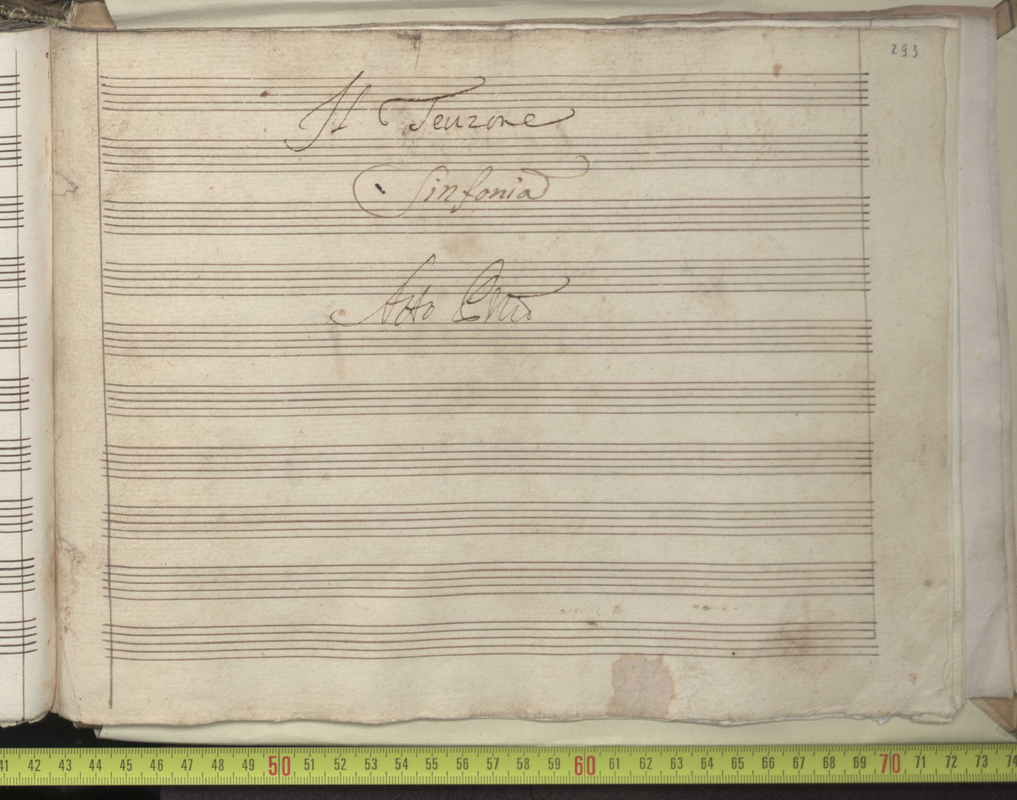 293
Il Teuzone
Sinfonia
Atto Pmo
41 42 43 44 45 46 47 48 49 50 51 52 53 54 55 56 57 58 59 60 61 62 63 64 65 66 67 68 69 70 71 72 73 74